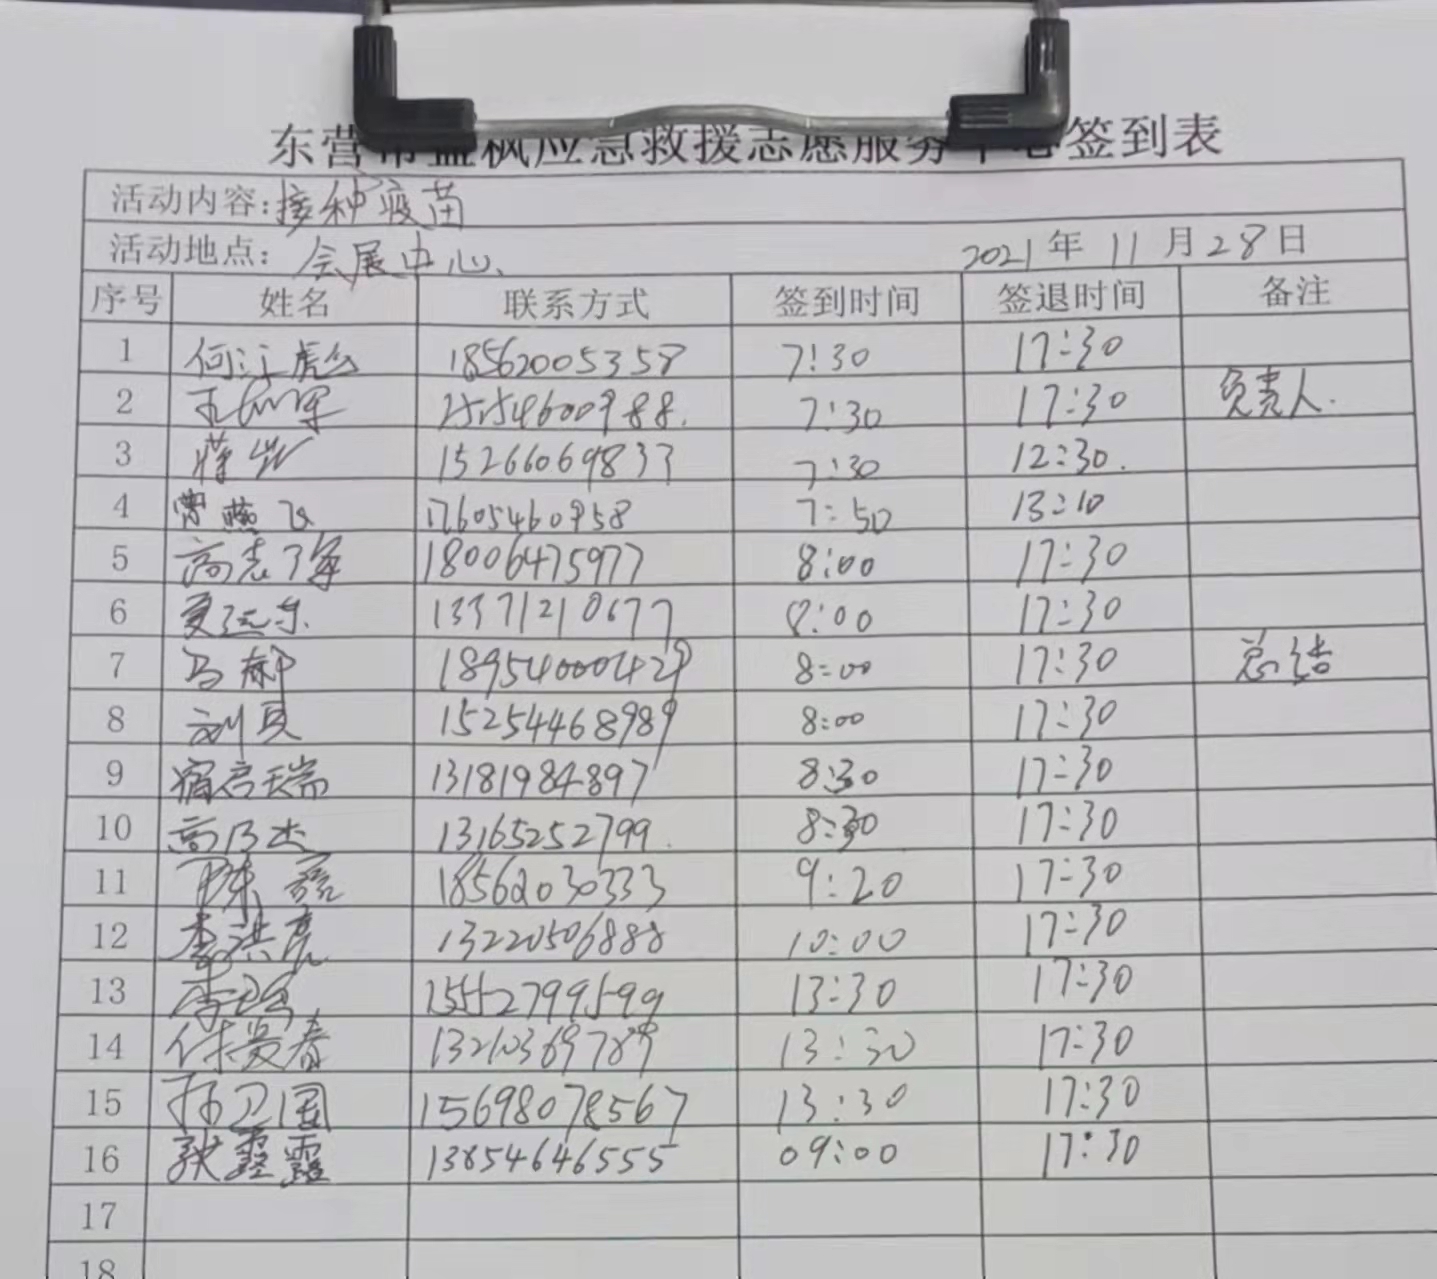 东营市蓝枫应急救援志愿服务中心签到表
活动内容:接种疫苗
活动地点:会展中心、 2021年11月28日
序号 姓名 联系方式 签到时间 签退时间 备注
1 何江彪 18562005358 7:30 17:30
2 15154600988. 7:30 17:30 负责人.
3 蒋 15266069833 7:30 12:30.
4 常燕飞 17605460958 7:50 13:10
5 高志军 18006475977 8:00 17:30
6 夏远东 13371210677 8:00 17:30
7 马郝 18954000429 8:00 17:30 总结
8 刘贝 15254468989 8:00 17:30
9 宿启瑞 13181984897 8:30 17:30
10 高乃杰 13165252799. 8:30 17:30
11 陈 18562030333 9:20 17:30
12 李洪亮 13220506888 10:00 17:30
13 李 15552799599 13:30 17:30
14 任爱春 13210369789 13:30 17:30
15 孙卫国 15698078567 13:30 17:30
16 张露 13854646555 09:00 17:30
17
18